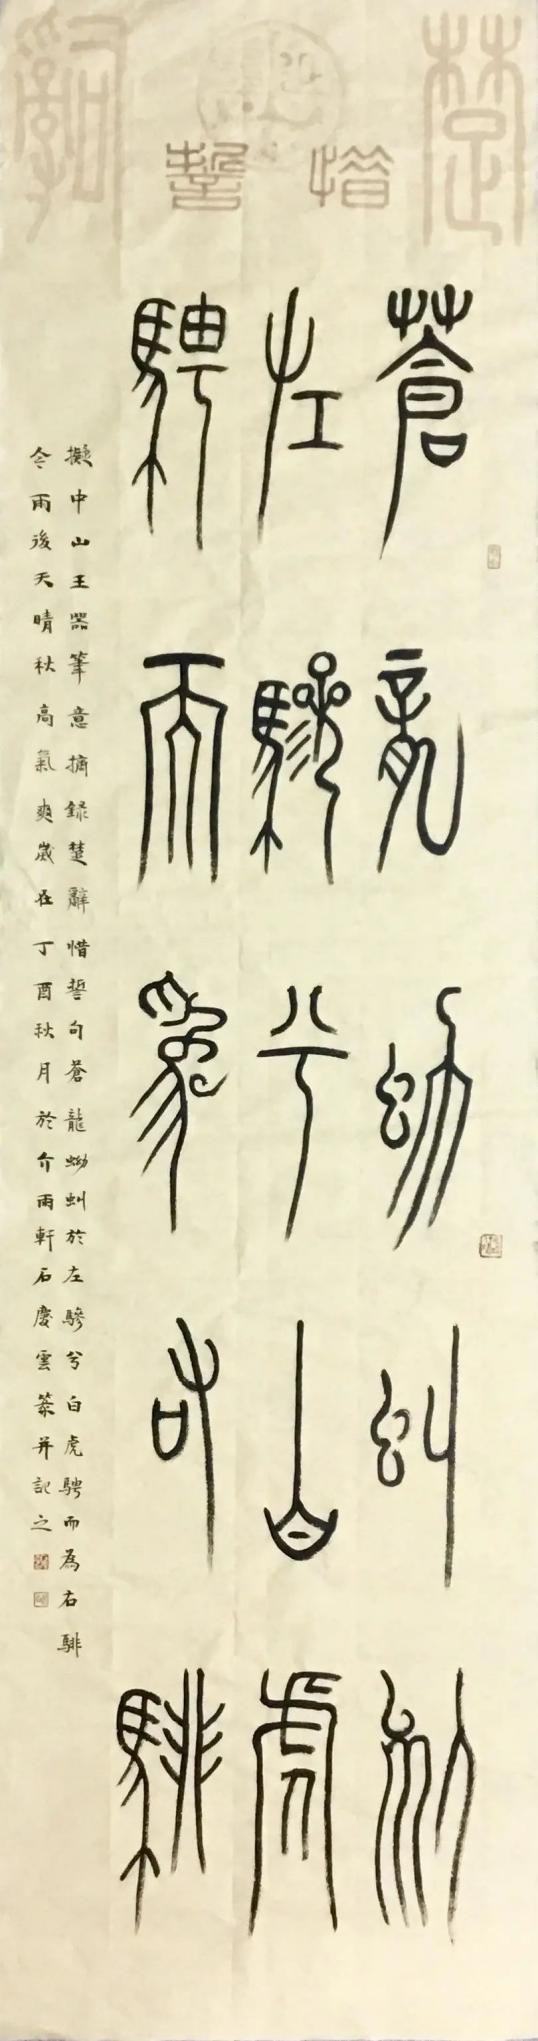 楚辭
惜誓
蒼龍蚴虯於
左驂兮白虎
騁而為右騑
擬中山王器筆意摘録楚辭惜誓句蒼龍蚴虯於左驂兮白虎騁而為右騑
今雨後天晴秋高氣爽歲在丁酉秋月於介雨軒石慶雲篆并記之